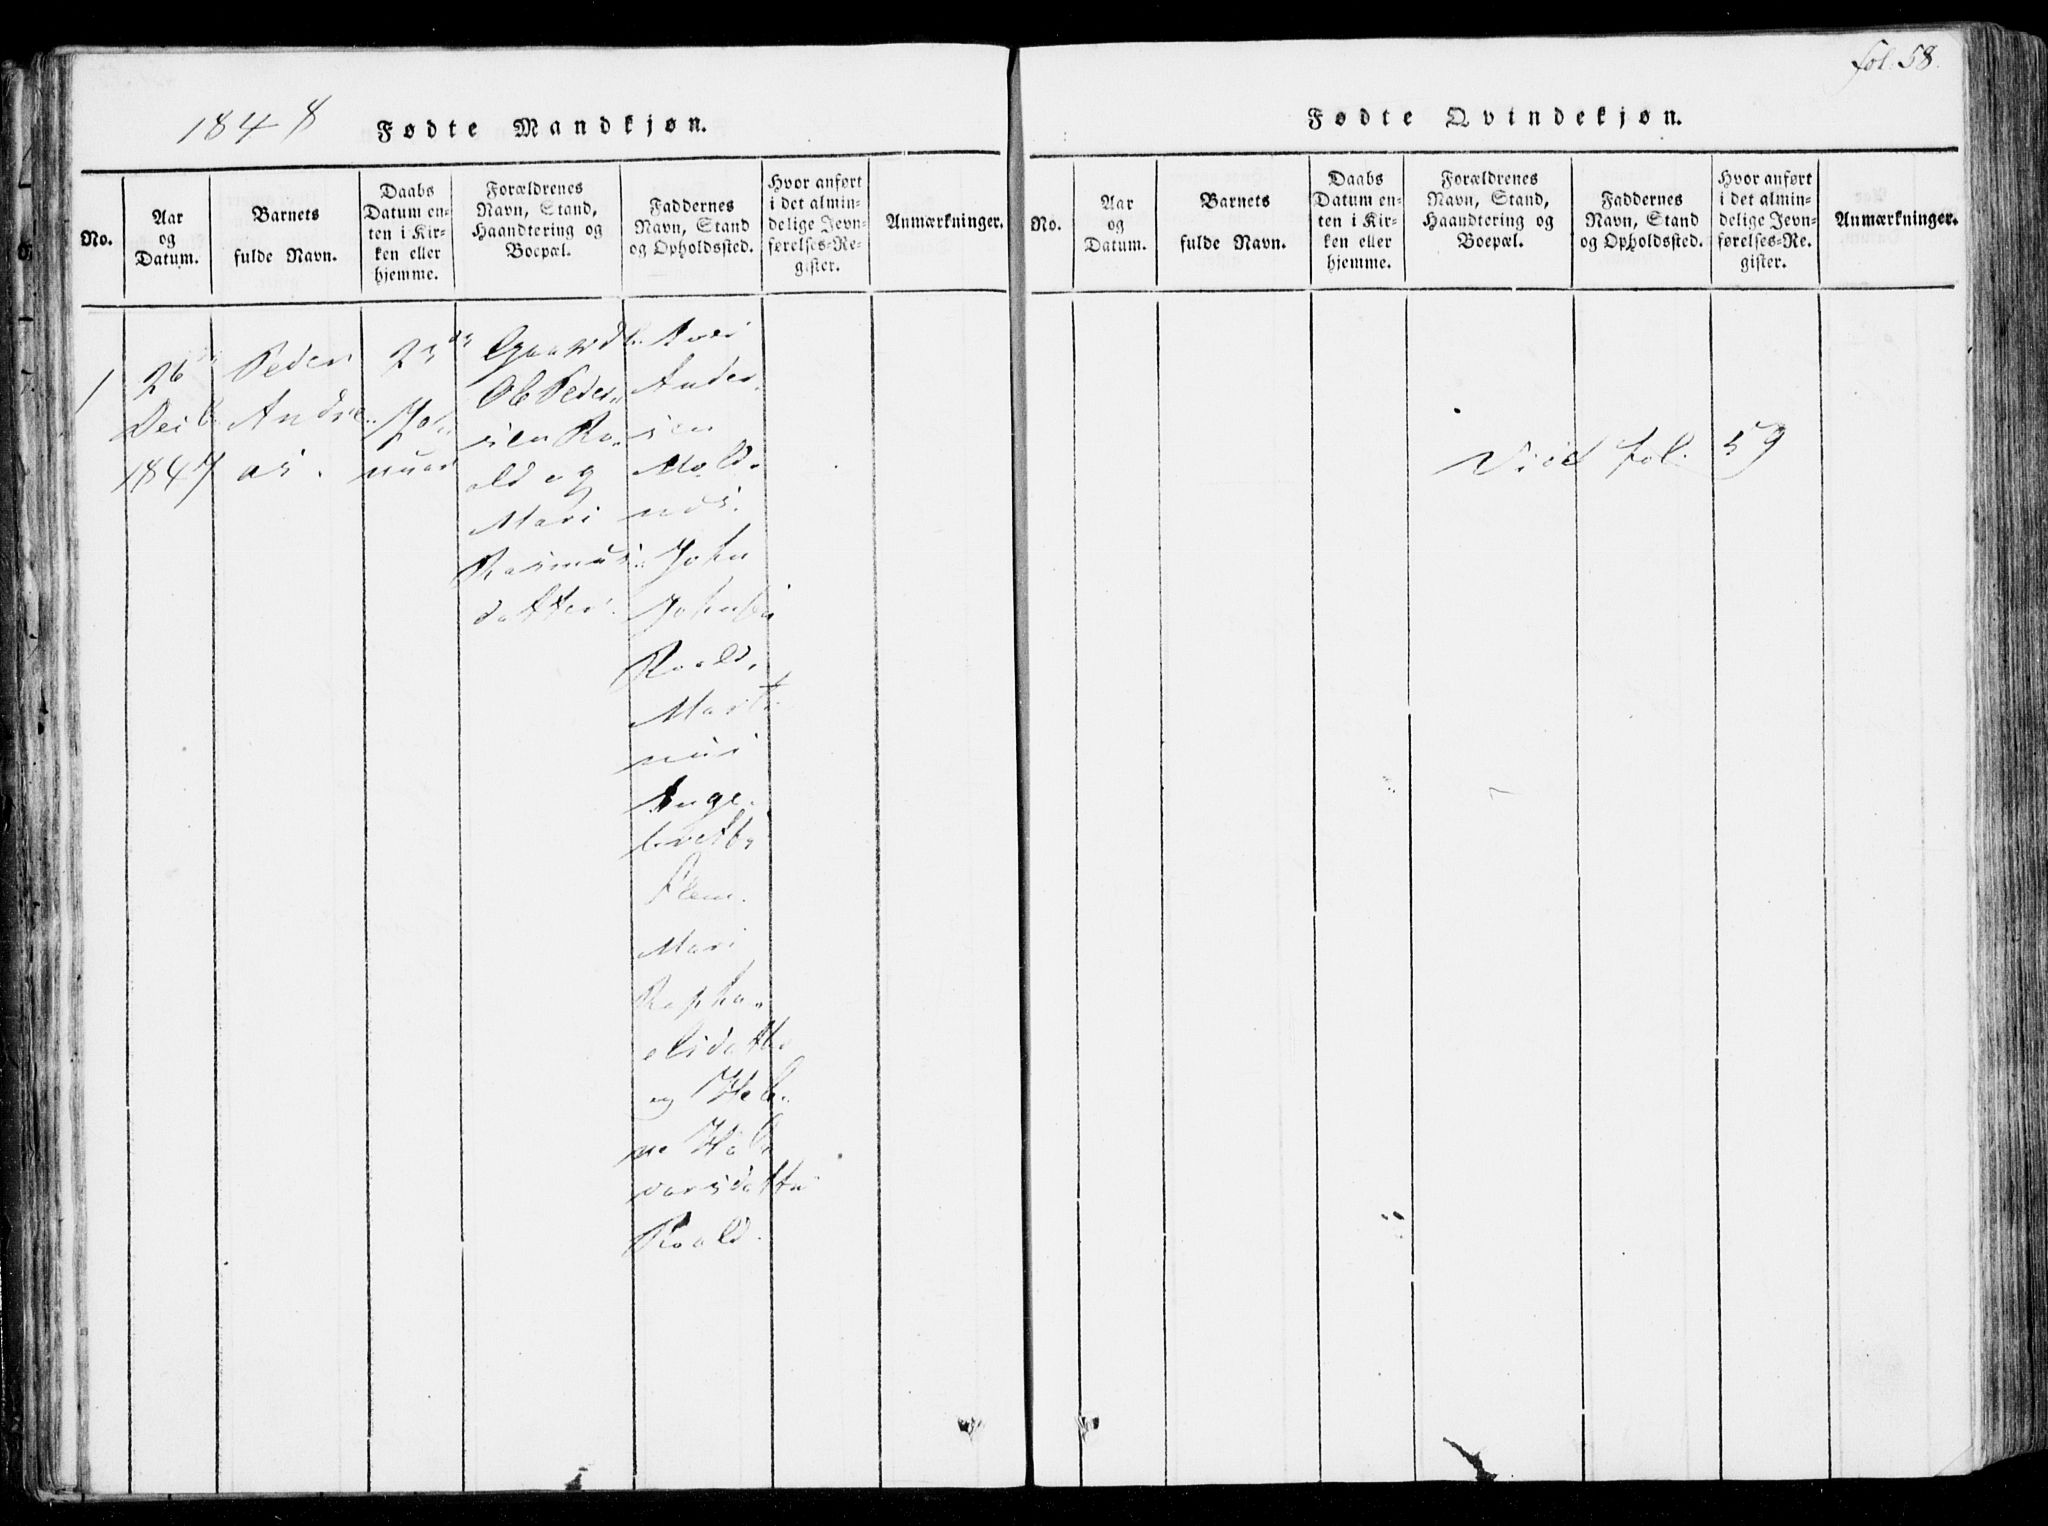 fol. 58.
1848 Fødte Mandkjøn.
No.
Aar
og
Datum.
Barnets
fulde Navn.
Daabs
Datum en-
ten i Kir-
ken eller
hjemme.
Forældrenes
Navn, Stand,
Haandtering og
Boepæl.
Faddernes
Navn, Stand
og Opholdssted.
Hvor anført
i det almin-
delige Jevn-
førelses-Re-
gister.
Anmærkninger.
1
26de
Decb.
1847
Peder
Andre-
as.
23de
Ja-
nuar
Gaardb.
Ole Peder-
sen Ro-
ald og
Mari
Rasmus-
datter.
Iver
Ander-
sen
Mold-
nes.
John
Johns
Roald.
Marti-
nus
Inge-
brets
Flem.
Mari
Rapha-
elsdatter
og Hele-
ne Hal-
varsdatter
Roald.
Fødte Qvindekjøn.
No.
Aar
og
Datum.
Barnets
fulde Navn.
Daabs
Datum en-
ten i Kir-
ken eller
hjemme.
Forældrenes
Navn, Stand,
Haandtering og
Boepæl.
Faddernes
Navn, Stand
og Opholdssted.
Hvor anført
i det almin-
delige Jevn-
førelses-Re-
gister.
Anmærkninger.
Vide fol. 59